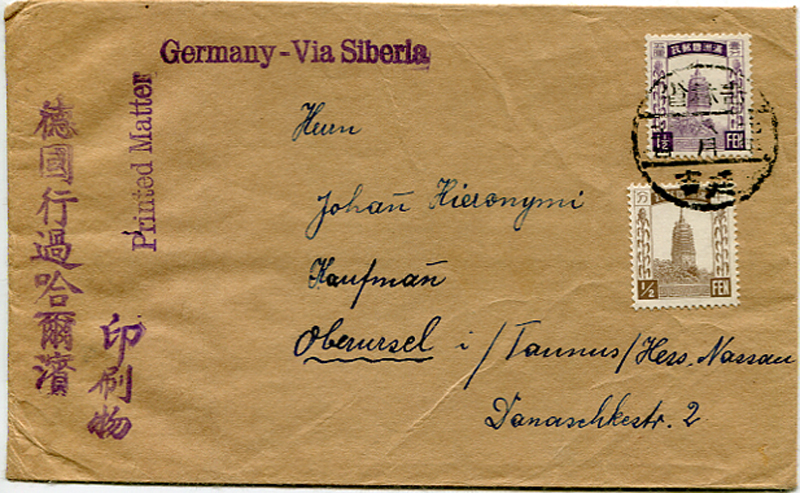 Germany - Via Siberia
Printed Matter
德國行過哈爾濱
印刷物
Herrn
Johañ Hieronymi
Kaufmañ
Oberursel i/Taunus/Hess. Nassau
Danaschkestr. 2
滿洲國郵政
1½
FEN
分
½
FEN